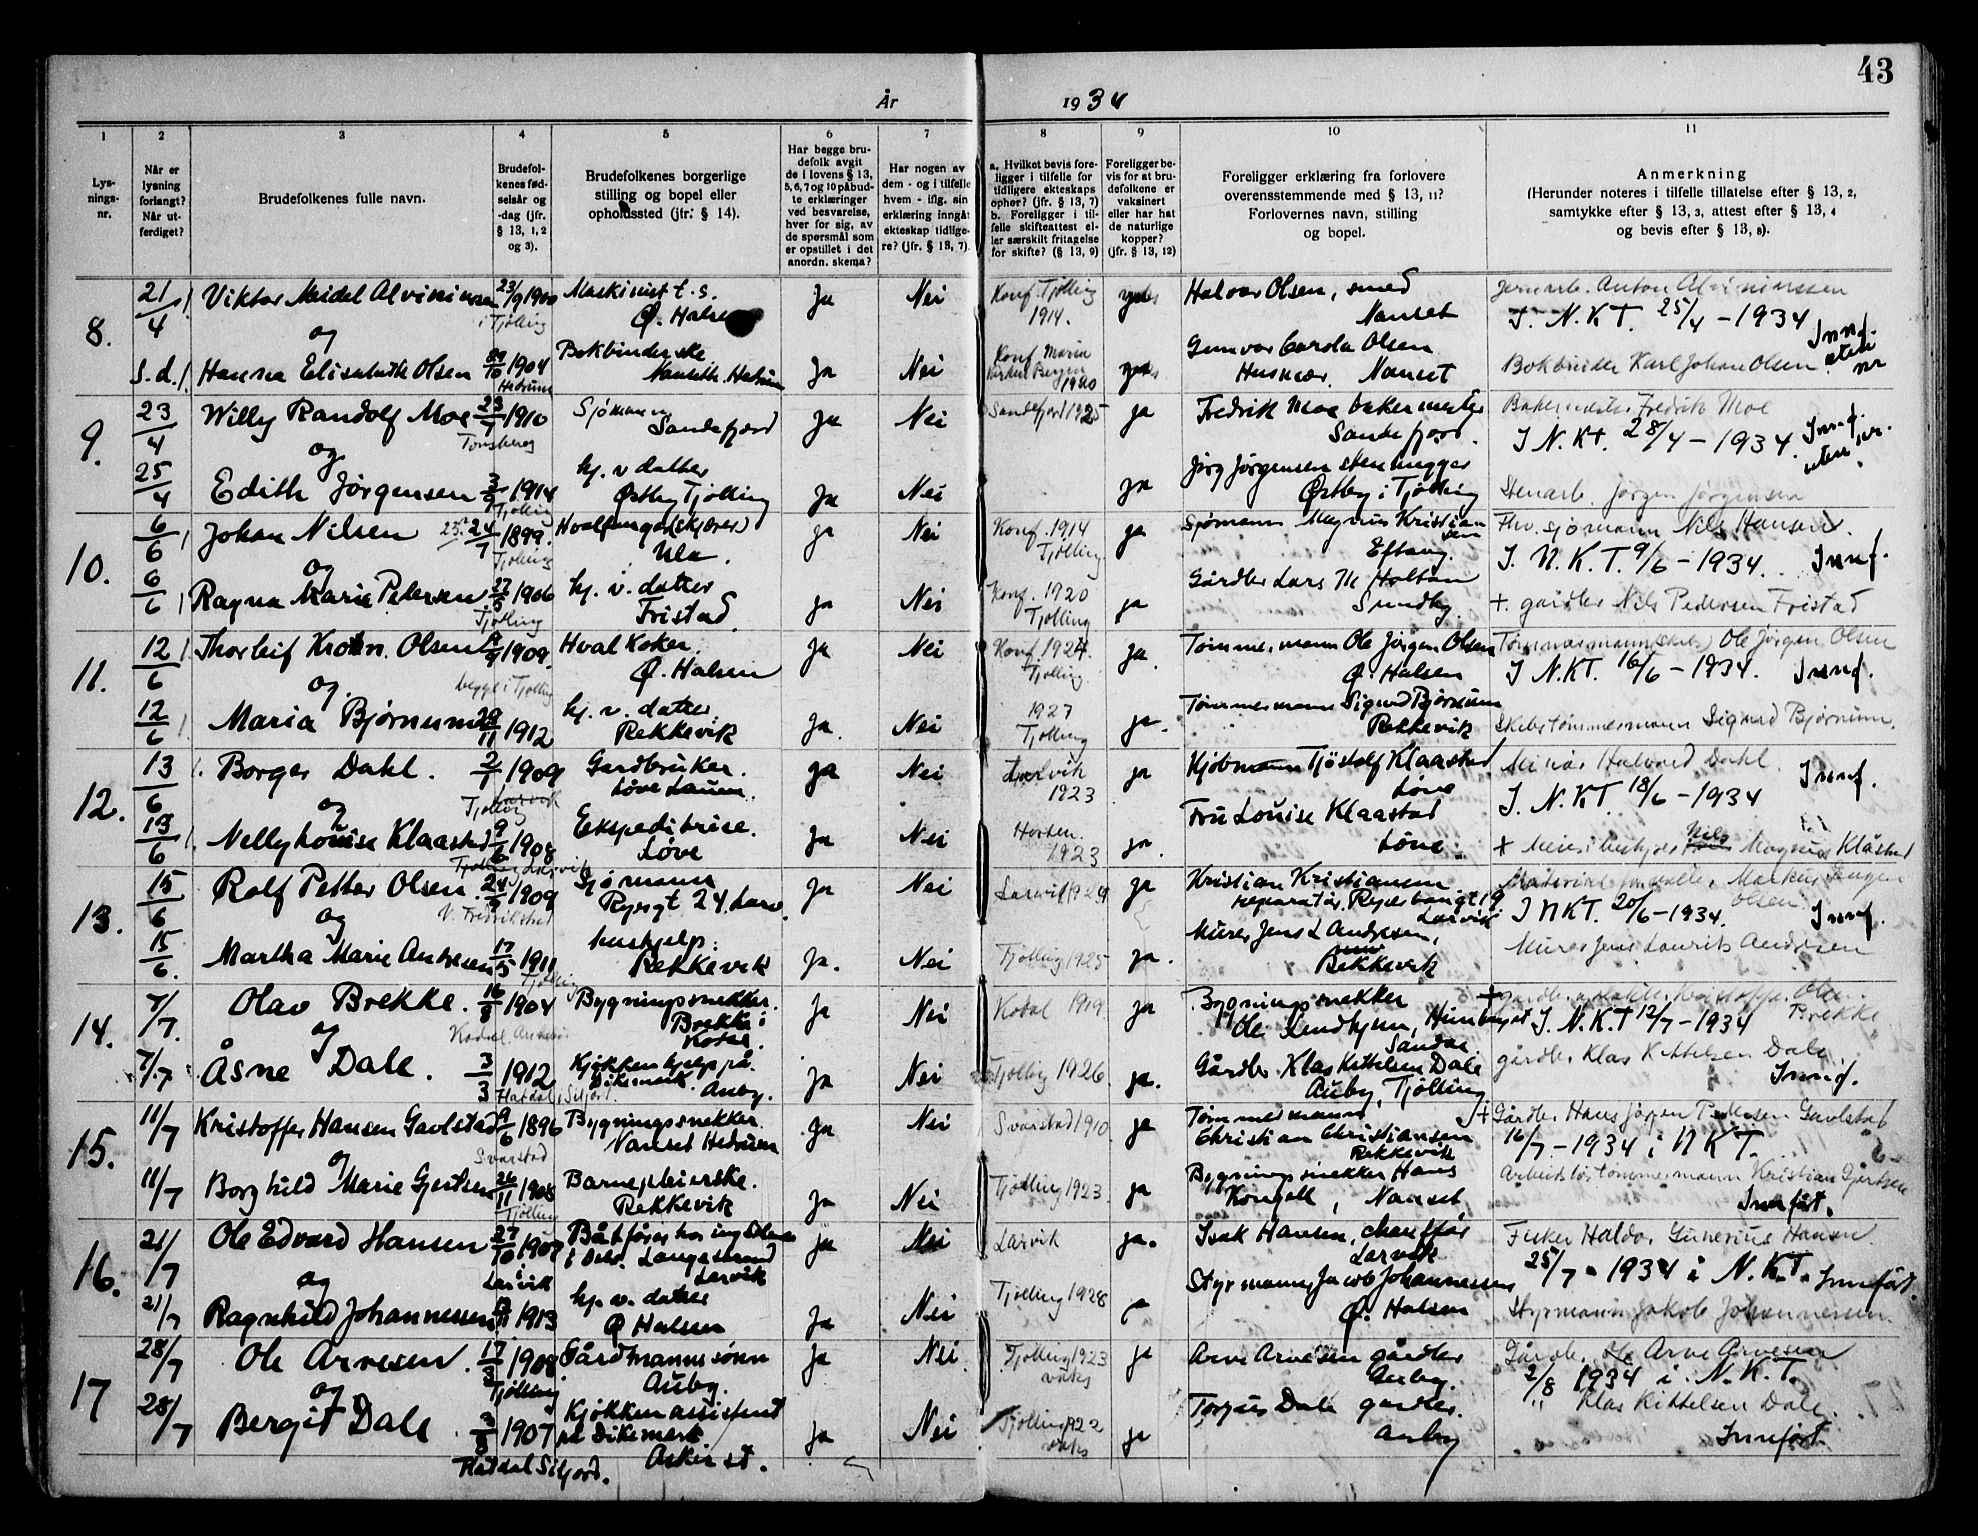 43
År 1934
1 2 3 4 5 6 7 8 9 10 11
Lysningsnr.
Når er lysning forlangt? Når utferdiget?
Brudefolkenes fulle navn.
Brudefolkenes fødselsår og -dag (jfr. § 13, 1, 2 og 3).
Brudefolkenes borgerlige stilling og bopel eller opholdssted (jfr. § 14).
Har begge brudefolk avgit de i lovens § 13, 5, 6, 7 og 10 påbudte erklæringer ved besvarelse, hver for sig, av de spørsmål som er opstillet i det anordn. skema?
Har nogen av dem - og i tilfelle hvem - iflg. sin erklæring inngått ekteskap tidligere? (jfr. § 13, 7).
a. Hvilket bevis foreligger i tilfelle for tidligere ekteskaps ophør? (jfr. § 13, 7)
b. Foreligger i tilfelle skifteattest eller særskilt fritagelse for skifte? (§ 13, 9)
Foreligger bevis for at brudefolkene er vaksinert eller har hat de naturlige kopper? (jfr. § 13, 12)
Foreligger erklæring fra forlovere overensstemmende med § 13, 11? Forlovernes navn, stilling og bopel.
Anmerkning
(Herunder noteres i tilfelle tillatelse efter § 13, 2, samtykke efter § 13, 3, attest efter § 13, 4 og bevis efter § 13, 8).
8.
21/4 Viktor Meidel Alvininssen 23/9 1900 i Tjølling Maskinist t.s. Ø. Halsen Ja Nei Konf. Tjølling 1914. Halvor Olsen, smed Nanset Jernarb. Anton Alvininssen
I. N.K.T. 25/4 - 1934 Innf.
og
s.d. Hanna Elisabeth Olsen 29/10 1904 Hedrum Bokbinderske Nanseth. Hedrum Ja Nei Konf Maria Kirken Bergen 1920 Gunvor Carola Olsen Husmor. Nanset Bokbinder Karl Johan Olsen
9.
23/4 Willy Randolf Moe 1910 Tønsberg Sjømann Sandefjord Ja Nei Sandefjord 1925 ja Fredrik Moe bakermester Sandefjord. Bakermester Fredrik Moe
I N.Kt. 28/4 - 1934. Innf.
og
25/4 Edith Jørgensen 1914 Tjølling hj. v datter Østby Tjølling Ja Nei ja Jørg Jørgensen stenhugger Østby i Tjølling Stenarb. Jørgen Jørgensen
10.
6/6 Johan Nilsen 24/7 1899. Tjølling Hvalfanger (skjærer) Ula. ja Nei Konf. 1914 Tjølling ja Sjømann Magnus Kristiansen Eftang. Fhv. sjømann Nils Hansen.
I. N.K.T. 9/6 - 1934. Innf.
og
6/6 Ragna Marie Petersen 27/5 1906 Tjølling hj. v. datter Fristad ja Nei Konf. 1920 Tjølling ja Gårdbr Lars M Holtan Sundby. + gårdbr Nils Pedersen Fristad
11.
12/6 Thorleif Olsen 1909. begge i Tjølling Hvalkoker. Ø. Halsen ja Nei Konf 1924. Tjølling ja. Tømmermann Ole Jørgen Olsen Ø. Halsen Tømmermann (skibs) Ole Jørgen Olsen
I N.KT. 16/6 - 1934. Innf.
og
12/6 Maria Bjørnum 29/11 1912 hj. v. datter Rekkevik Ja. Nei 1927 Tjølling ja. Tømmermann Sigurd Bjørnum Rekkevik Skibstømmermann Sigurd Bjørnum.
12.
13/6 Borger Dahl. 2/1 1909 Tjølling Gardbruker. Løve Lauen. ja Nei Larvik 1923 ja Kjøbmann Tjøstolf Klaastad Løve Halvard Dahl
I. N.KT. 18/6 - 1934 Innf.
og
13/6 Nelly Louise Klaastad 9/6 1908 Ekspeditrise. Løve Ja Nei Horten. 1923 ja. Fru Louise Klaastad Løve. + Nils Magnus Klåstad
13.
15/6 Rolf Petter Olsen. 1909 V. Fredrikstad Sjømann Ryesgt 24. Larv. Ja Nei Larvik 1924 ja Kristian Kristiansen reparatør Larvik Markus Olsen
I NKT. 20/6 - 1934. Innf.
og
15/6. Martha Marie Andresen 17/5 1911 Tjølling hushjelp. Rekkevik Ja. Nei Tjølling 1925 ja. Murer Jens L Andresen, Rekkevik Murer Jens Laurits Andresen
14.
7/7. Olav Brekke. 16/8 1904 Kodal Bygningssnekker. Brekke i Kodal. Ja Nei Kodal 1919 ja Bygningssnekker Ole Lindhjem, Sandar + gårdbr. Kristoffer Olsen Brekke
I. N.K.T 12/7 - 1934
og
7/7 Åsne Dale. 3/3 1912 Flatdal, Siljord. Kjøkkenhjelp på Dikemark. Auby. ja Nei Tjølling 1926 ja. Gårdbr. Klas Kittelsen Dale Auby, Tjølling gårdbr. Klas Kittelsen Dale
Innf.
15.
11/7 Kristoffer Hansen Gavlstad 1896 Svarstad Bygningssnekker. Nanset Hedrum Ja Nei Svarstad 1910 ja Tømmermann Christian Christiansen Rekkevik + Gårdbr. Hans Jørgen Pedersen Gavlstad
16/7 - 1934 i NKT.
og
11/7 Borghild Marie Gjertsen 26/11 1908 Tjølling Barnepleierske. Rekkevik Ja Nei Tjølling 1923. ja Bygningssnekker Hans Kongell, Nanset, tømmermann Kristian Gjertsen
Innført.
16.
21/7 Ole Edvard Hansen 27/10 1907 i Larvik Båtfører hos Langestrand Larvik ja Nei Larvik ja. Isak Hansen, chauffør Larvik Fisker Haldor Gunerius Hansen
25/7 - 1934 i N.K.T. Innført.
og
21/7 Ragnhild Johannessen 1913 hj. v. datter Ø Halsen Ja Nei Tjølling 1928 ja Styrmann Jacob Johannessen Ø. Halsen Styrmann Jakob Johannessen.
17
28/7 Ole Arvesen. 17/3 1908 Tjølling Gårdmannssønn Auby. Ja Nei. Tjølling 1923 vaks ja Arve Arvesen gårdbr Auby. Gårdbr. Ole Arve Arvesen
2/8 1934 i N.K.T.
og
28/7 Bergit Dale 1907 Flatdal Siljord. Kjøkkenassistent på Dikemark Asker st. Ja Nei Tjølling 1922 vaks ja Torjus Dale gardbr. Auby Klas Kittelsen Dale.
Innført